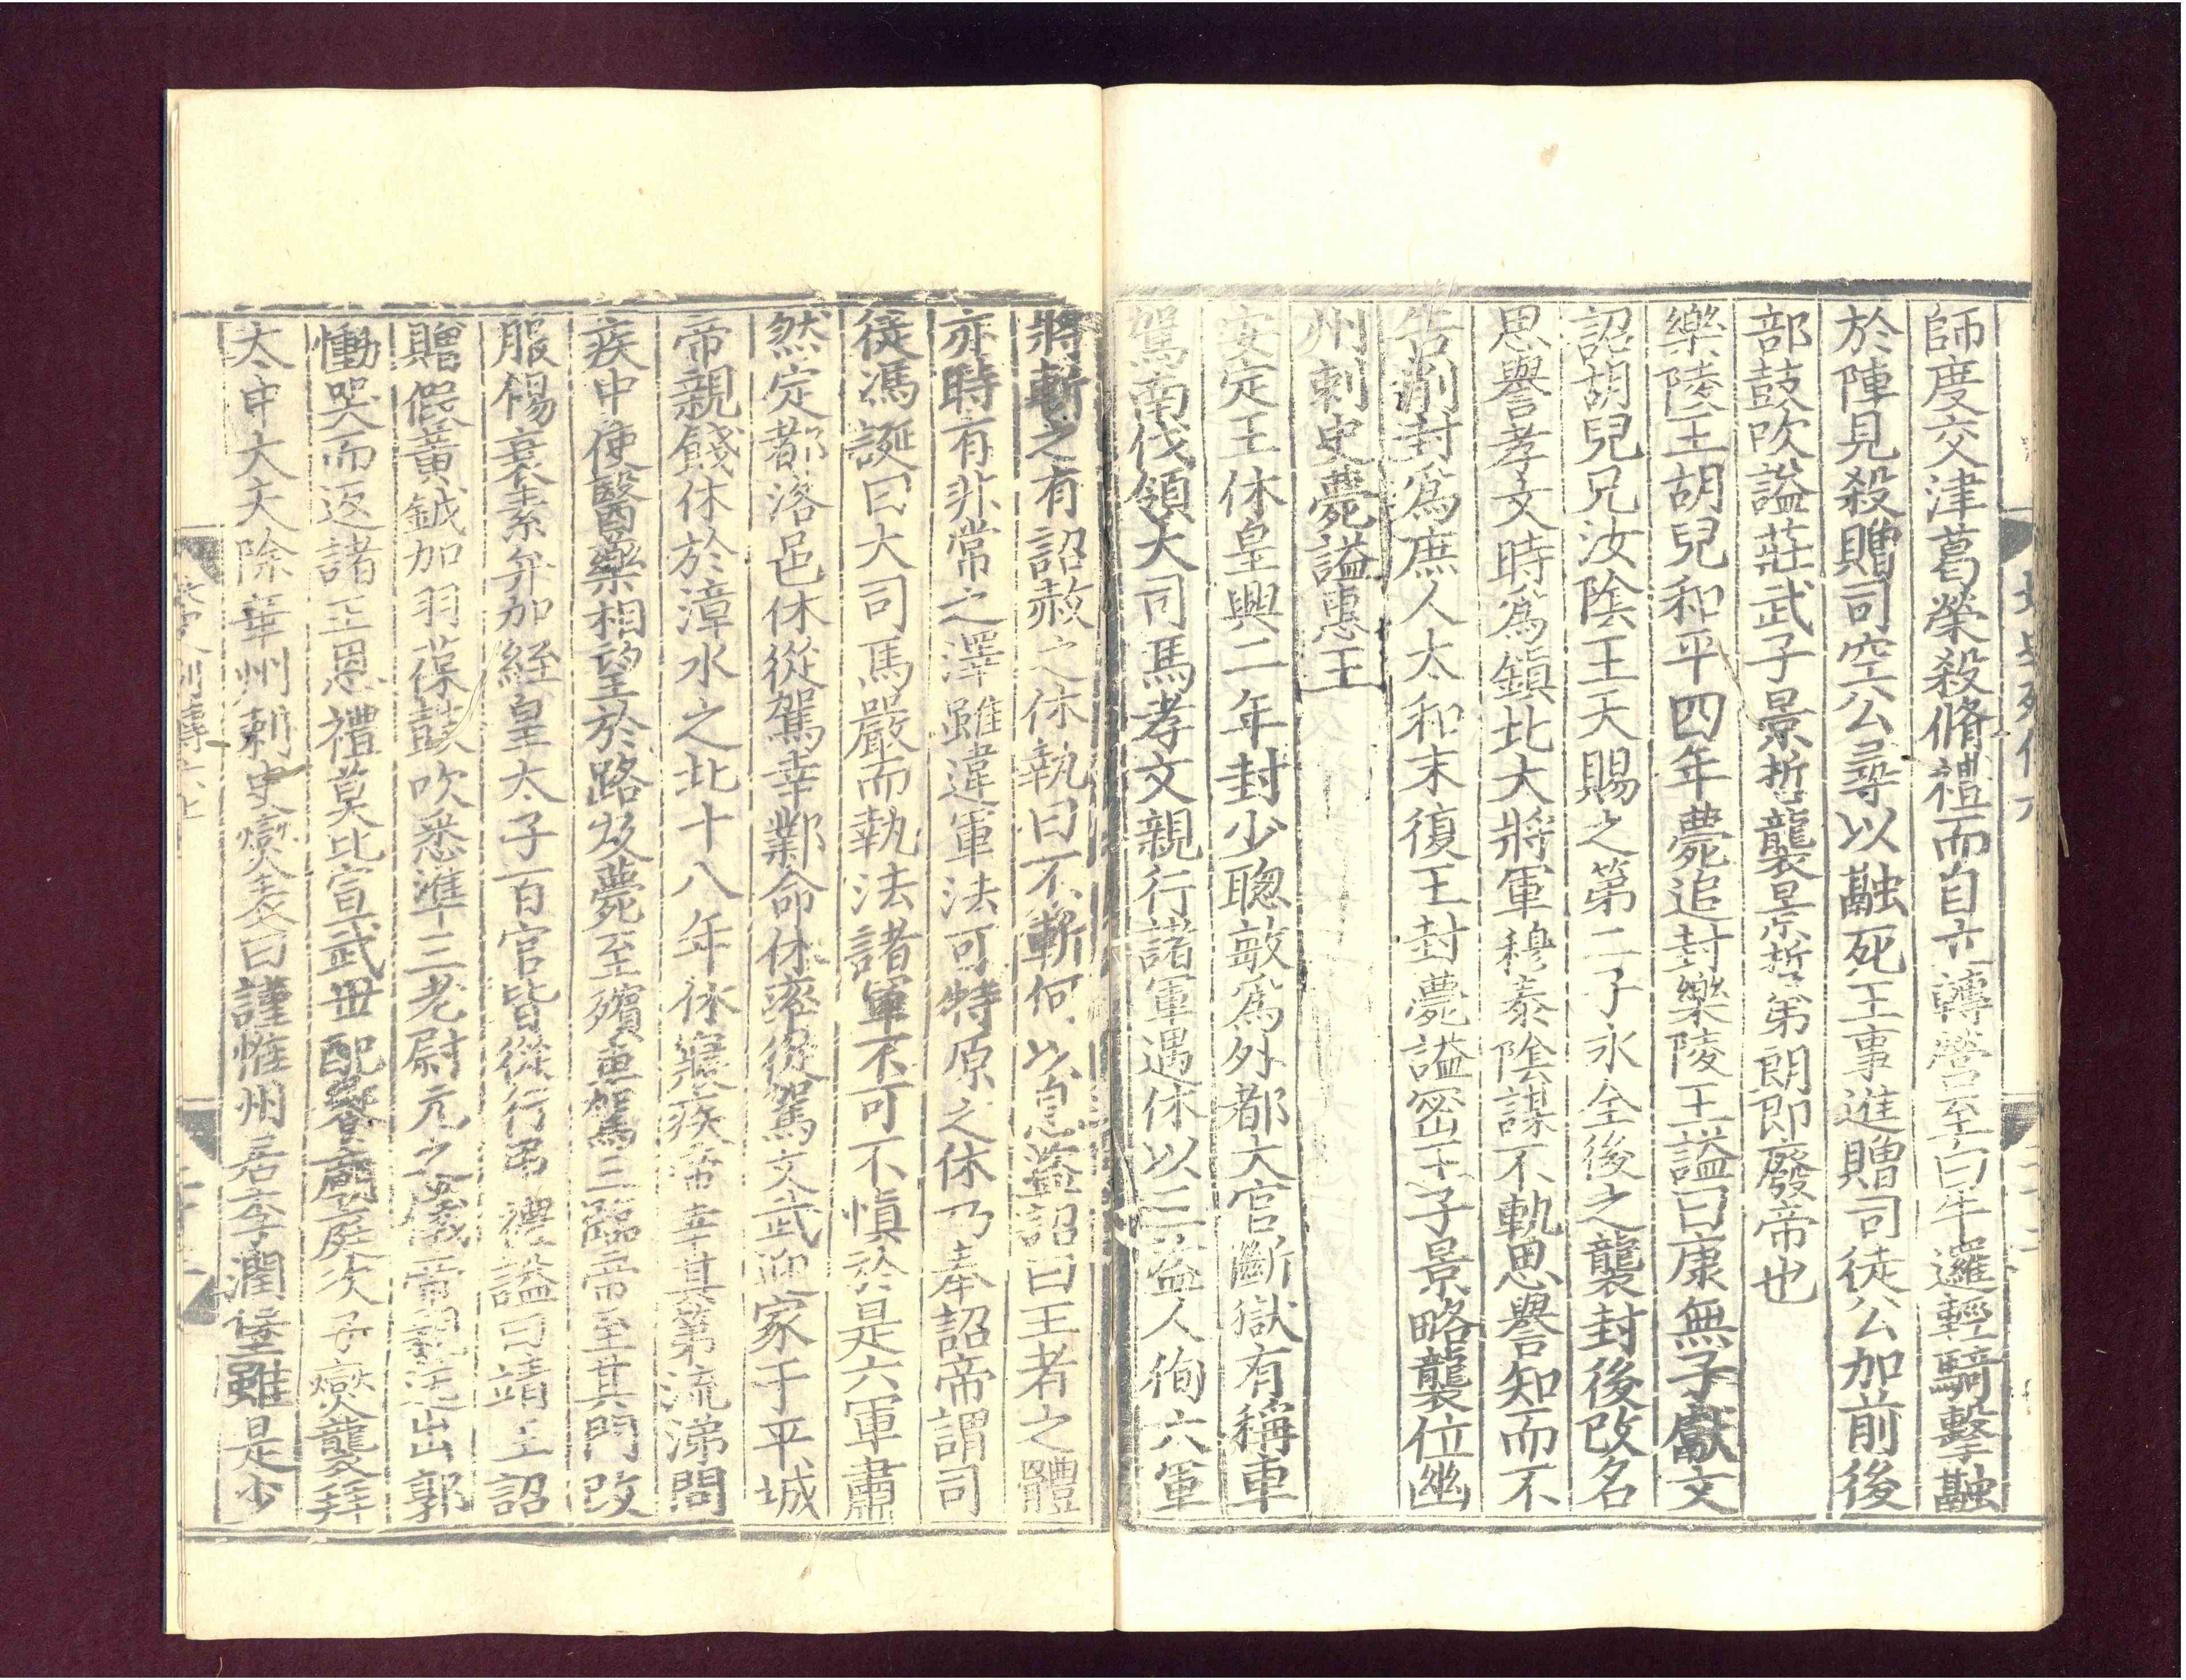 師度交津葛榮殺脩禮而自立轉營至白牛邏輕騎擊融
於陣見殺贈司空公尋以融死王事進贈司徒公加前後
部鼓吹謚莊武子景哲襲景哲弟朗即廢帝也
樂陵王胡兒和平四年薨追封樂陵王謚曰康無子獻文
詔胡兒兄汝陰王天賜之第二子永全後之襲封後改名
思譽孝文時爲鎮北大將軍穆泰陰謀不軌思譽知而不
告削封爲庶人太和末復王封薨謚密王子景略襲位幽
州刺史薨謚惠王
安定王休皇興二年封少聦敏爲外都大官斷獄有稱車
駕南伐領大司馬孝文親行諸軍遇休以三盗人徇六軍
將斬之有詔赦之休執曰不斬何以息盗詔曰王者之體
亦時有非常之澤雖違軍法可特原之休乃奉詔帝謂司
徒馮誕曰大司馬嚴而執法諸軍不可不慎於是六軍肅
然定都洛邑休從駕幸鄴命休率從駕文武迎家于平城
帝親餞休於漳水之北十八年休寢疾帝幸其第流涕問
疾中使醫藥相望於路及薨至殯車駕三臨帝至其門改
服裼衰素弁加絰皇太子百官皆從行弔禮謚曰靖王詔
贈假黃鉞加羽葆鼓吹悉準三老尉元之儀帝親送出郭
慟哭而返諸王恩禮莫比宣武世配饗廟庭次子爕襲拜
太中大夫除華州刺史爕表曰謹惟州居李潤堡雖是少